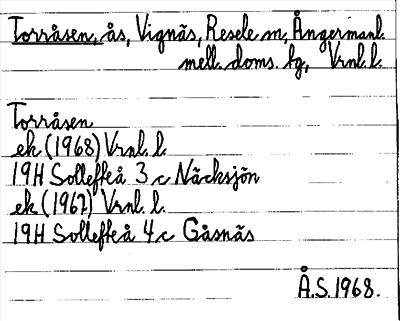 Torråsen, ås, Vignäs, Resele sn, Ångermanl.
mell. doms. fg, Vrnl. l.
Torråsen
ek (1968) Vrnl. l.
19H Sollefteå 3 c Näcksjön
ek (1967) Vrnl. l.
19H Sollefteå 4 c Gåsnäs
Å.S. 1968.